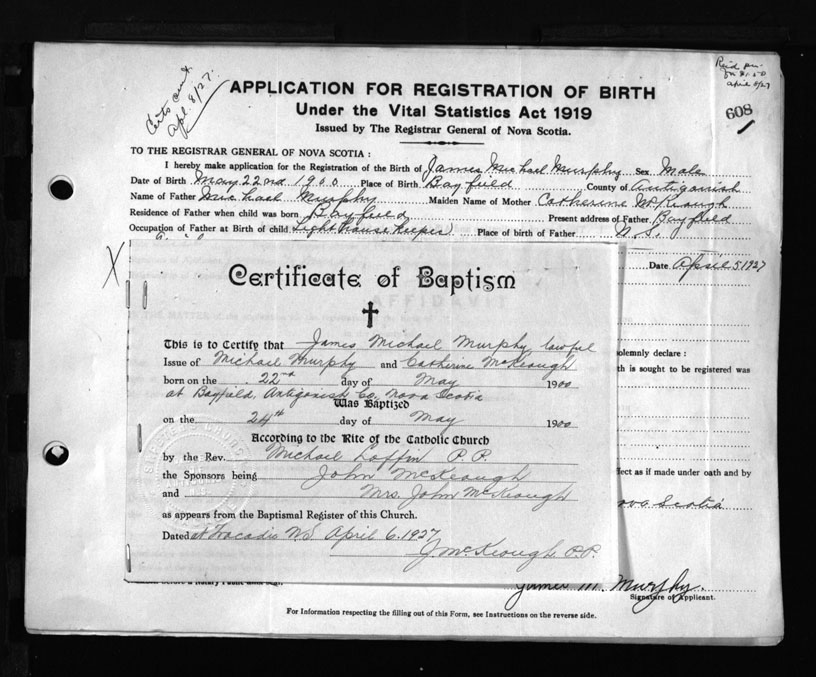 Certs sent
Apl. 8/27.
April 8/27
608
APPLICATION FOR REGISTRATION OF BIRTH
Under the Vital Statistics Act 1919
Issued by The Registrar General of Nova Scotia.
TO THE REGISTRAR GENERAL OF NOVA SCOTIA :
I hereby make application for the Registration of the Birth of James Michael Murphy Sex Male
Date of Birth May 22nd 1900 Place of Birth Bayfield County of Antigonish
Name of Father Michael Murphy Maiden Name of Mother Catherine McKeough
Residence of Father when child was born Bayfield Present address of Father Bayfield
Occupation of Father at Birth of child Lighthouse Keeper Place of birth of Father N.S.
Date April 5, 1927
X
Certificate of Baptism
AFFIDAVIT
This is to Certify that James Michael Murphy lawful
Issue of Michael Murphy and Catherine McKeough
born on the 22nd day of May 1900
at Bayfield, Antigonish Co. Nova Scotia
Was Baptized
on the 24th day of May 1900
According to the Rite of the Catholic Church
by the Rev. Michael Laffin P.P.
the Sponsors being John McKeough
and Mrs. John McKeough
as appears from the Baptismal Register of this Church.
Dated at Tracadie N.S April 6, 1927
J. McKeough. P.P.
olemnly declare :
th is sought to be registered was
fect as if made under oath and by
ova Scotia
James M. Murphy.
Signature of Applicant.
For Information respecting the filling out of this Form, see Instructions on the reverse side.